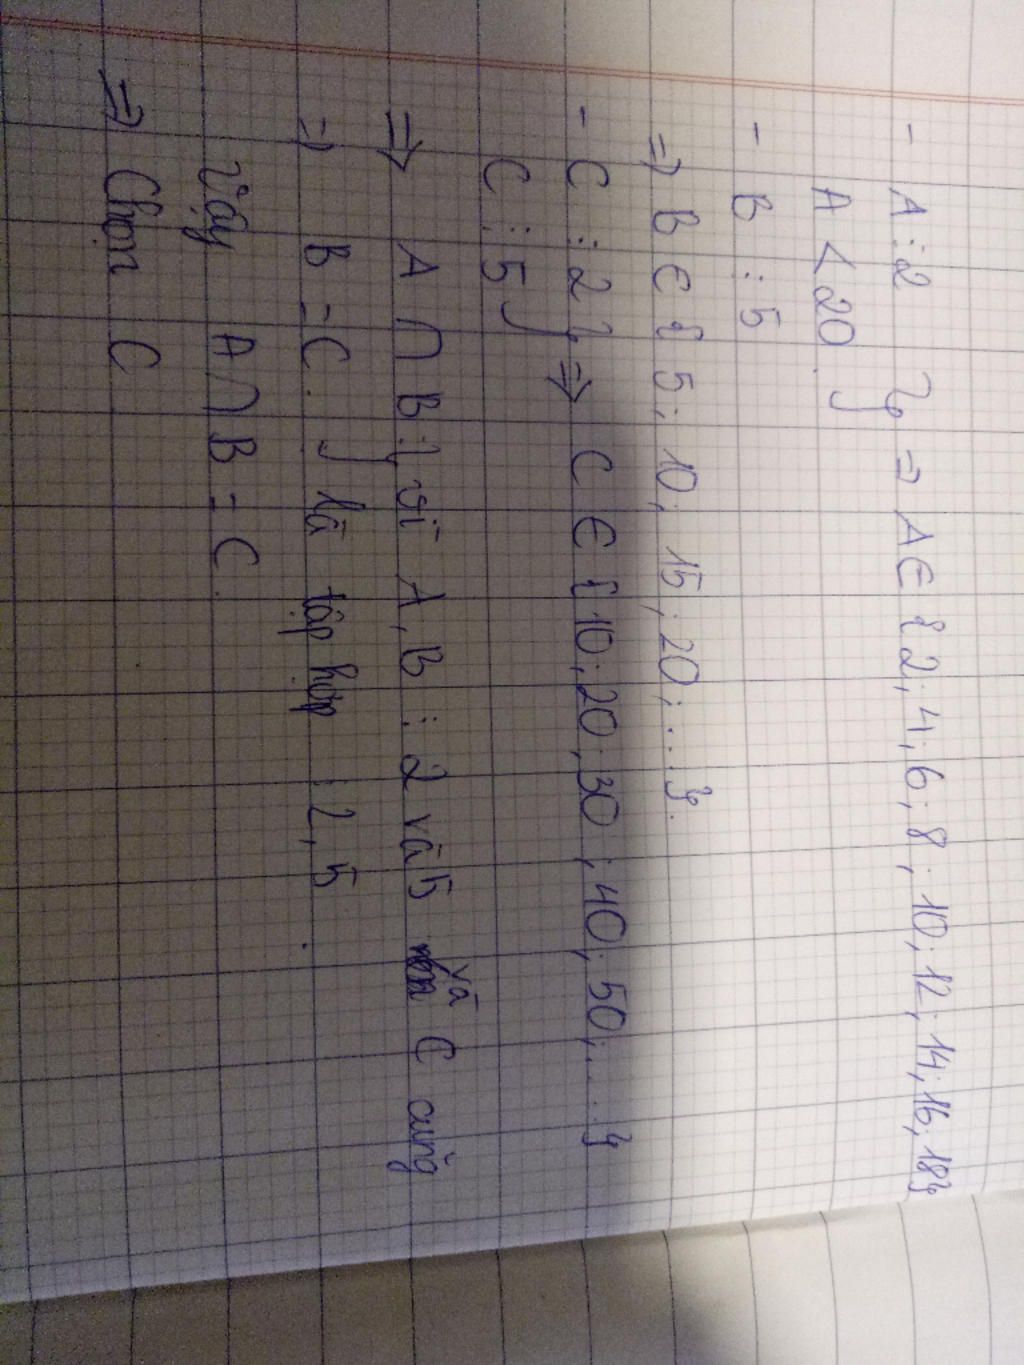 - A ⋮ 2 } => A ∈ { 2; 4; 6; 8; 10; 12; 14; 16; 18}
A < 20.
- B ⋮ 5
=> B ∈ { 5; 10; 15; 20; ....}.
- C ⋮ 2 } => C ∈ { 10; 20; 30; 40; 50; .....}
C ⋮ 5
=> A ∩ B } vì A, B ⋮ 2 và 5 và C cũng
=> B = C. là tập hợp ⋮ 2, 5.
Vậy A ∩ B = C.
=> Chọn C